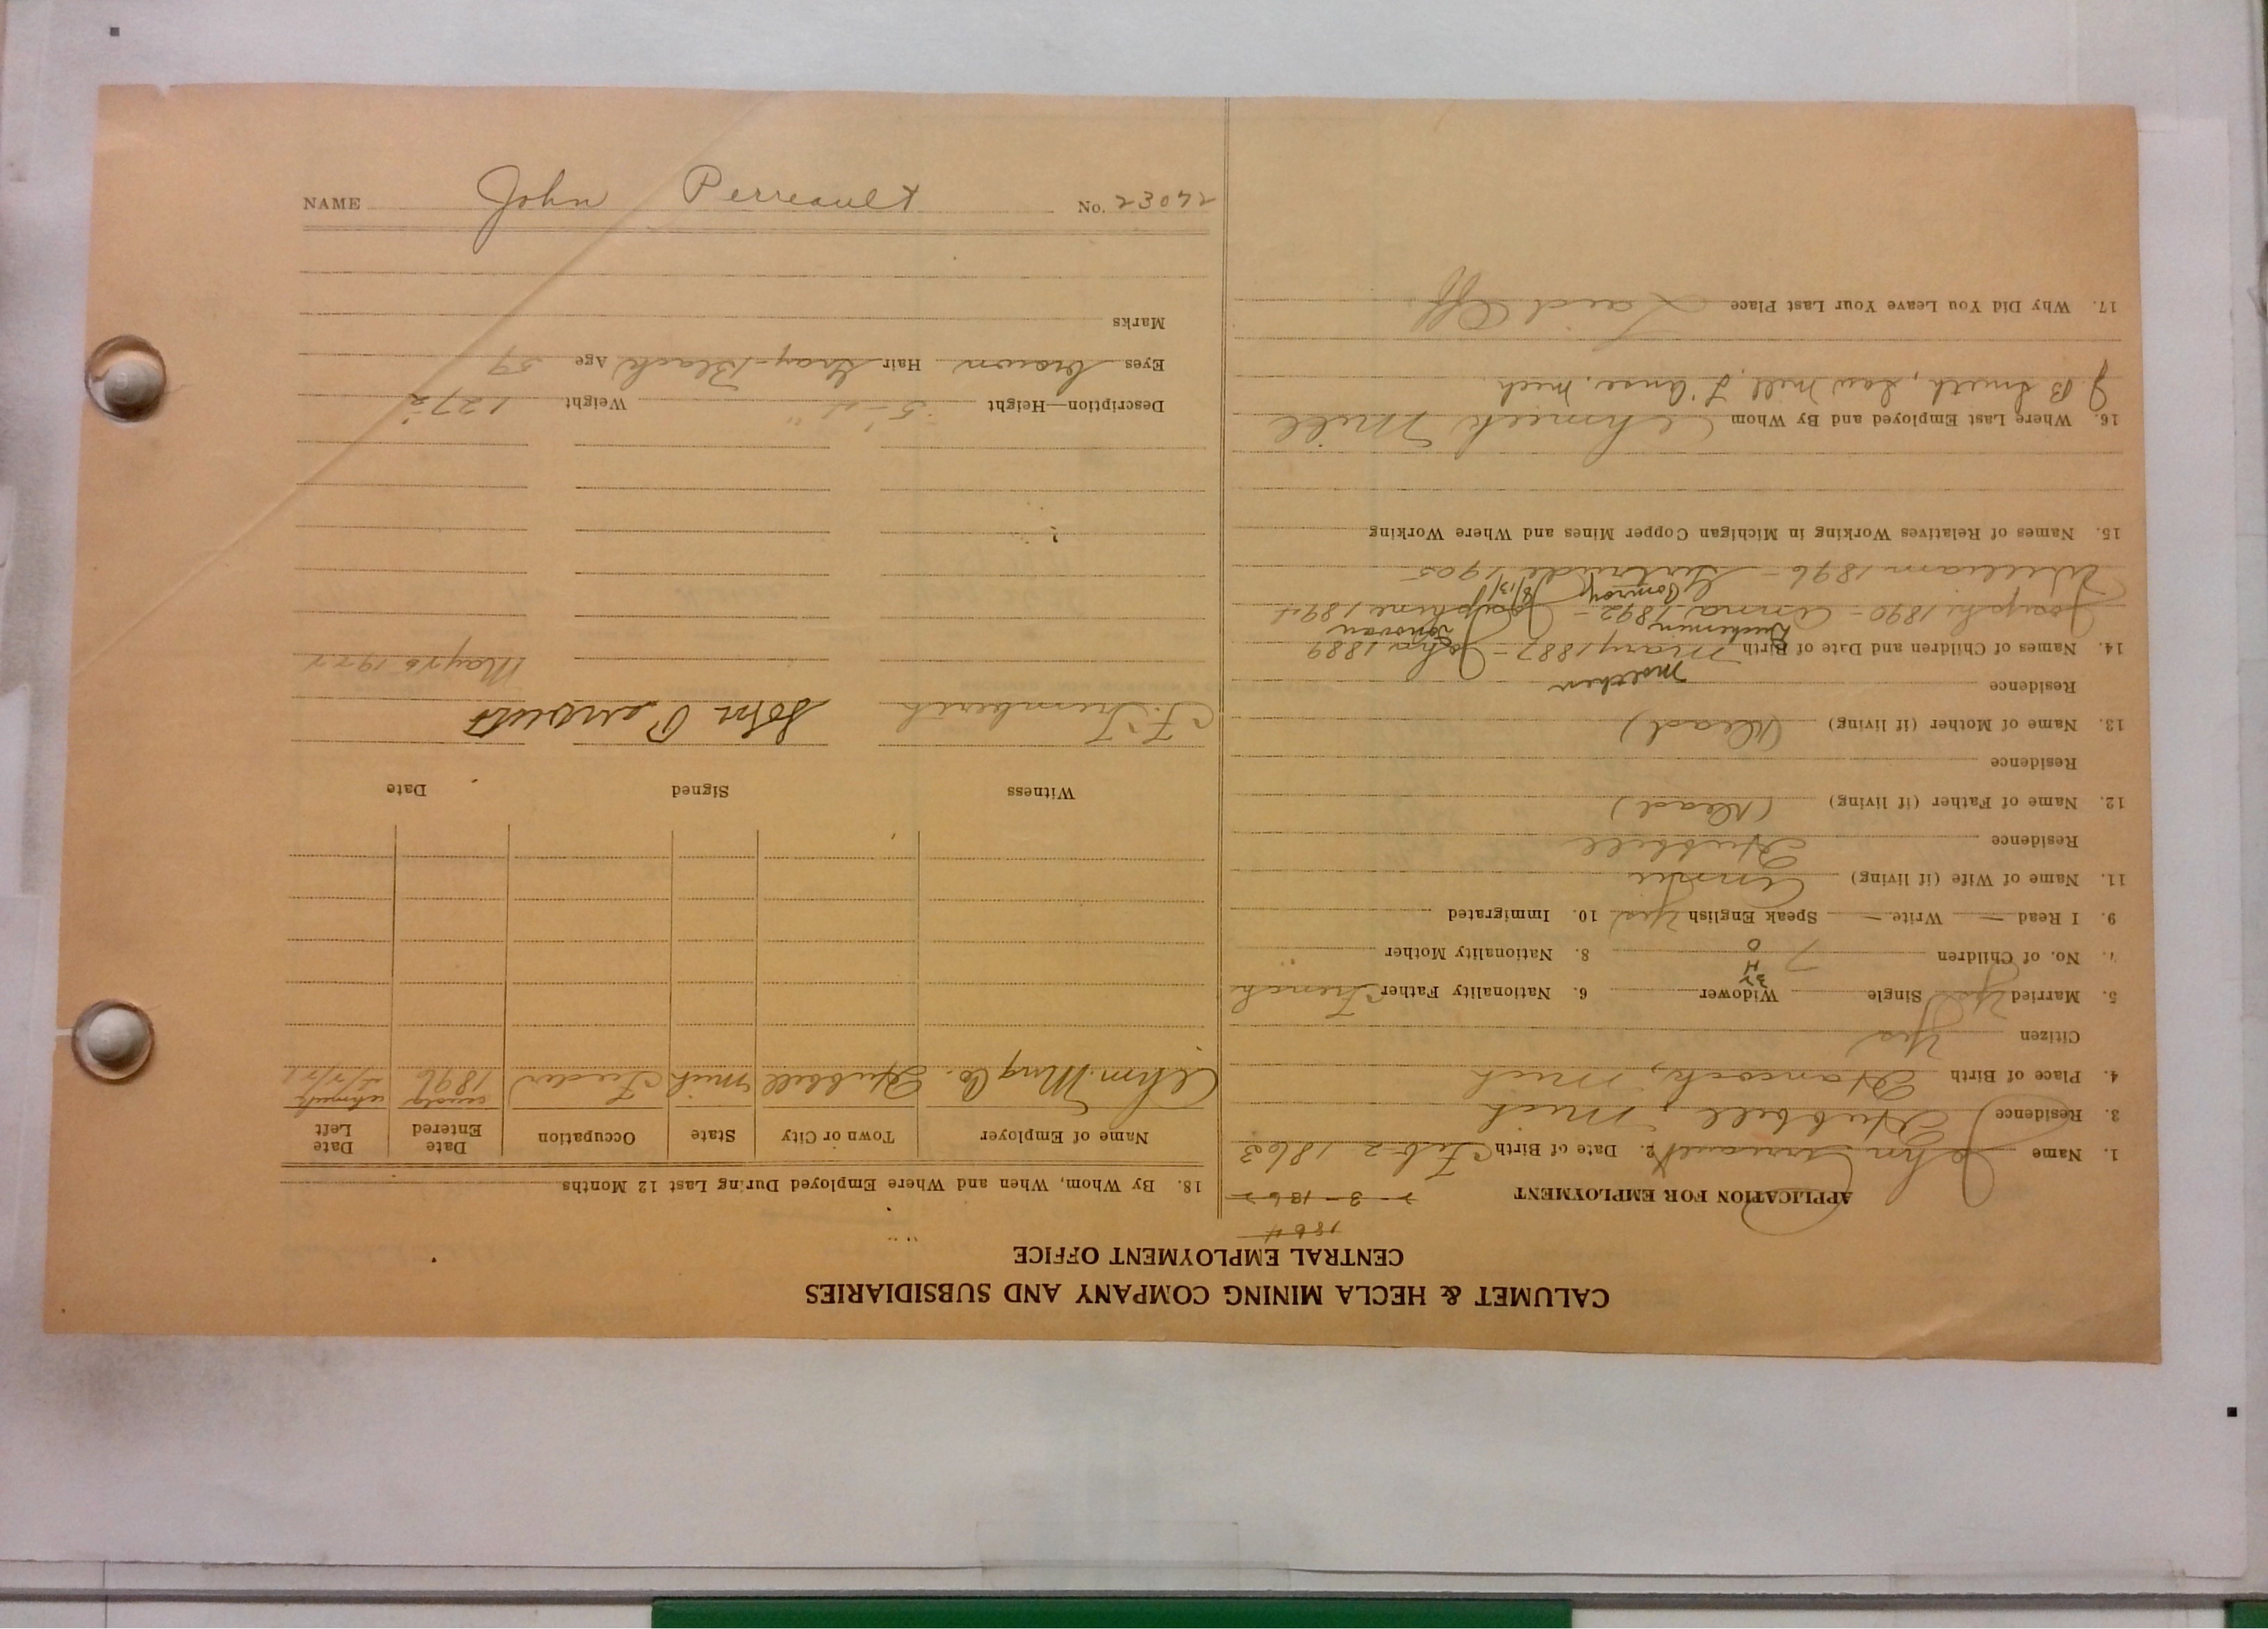 NAME John Perreault No. 23072
CALUMET & HECLA MINING COMPANY AND SUBSIDIARIES
CENTRAL EMPLOYMENT OFFICE
1864
APPLICATION FOR EMPLOYMENT 2-3-1862
1. Name John Perreault 2. Date of Birth Feb-2 1863
3. Residence Hubbell, Mich
4. Place of Birth Hancock, Mich
Citizen Yes
5. Married Yes Single Widower 6. Nationality Father French
7. No. of Children 7 8. Nationality Mother
9. I Read — Write — Speak English Yes 10. Immigrated
11. Name of Wife (if living)
Residence Hubbell
12. Name of Father (if living) (Dead)
Residence
13. Name of Mother (if living) (Dead)
Residence
14. Names of Children and Date of Birth Mary 1887 - John 1889
Joseph 1890 - Anna 1892 - Josephine 1894
William 1896 - Gertrude 1905
15. Names of Relatives Working in Michigan Copper Mines and Where Working
16. Where Last Employed and By Whom Ahmeek Mill
J B Smith, Saw Mill, L'Anse. Mich.
17. Why Did You Leave Your Last Place Laid Off
18. By Whom, When and Where Employed During Last 12 Months
Name of Employer Town or City State Occupation Date Entered Date Left
Ahm. Mng Co. Hubbell Mich Feeder 1896
Witness Signed Date
John Perreault May 26 1922
Description—Height 5'-4" Weight 127½
Eyes brown Hair Gray-Black Age 59
Marks